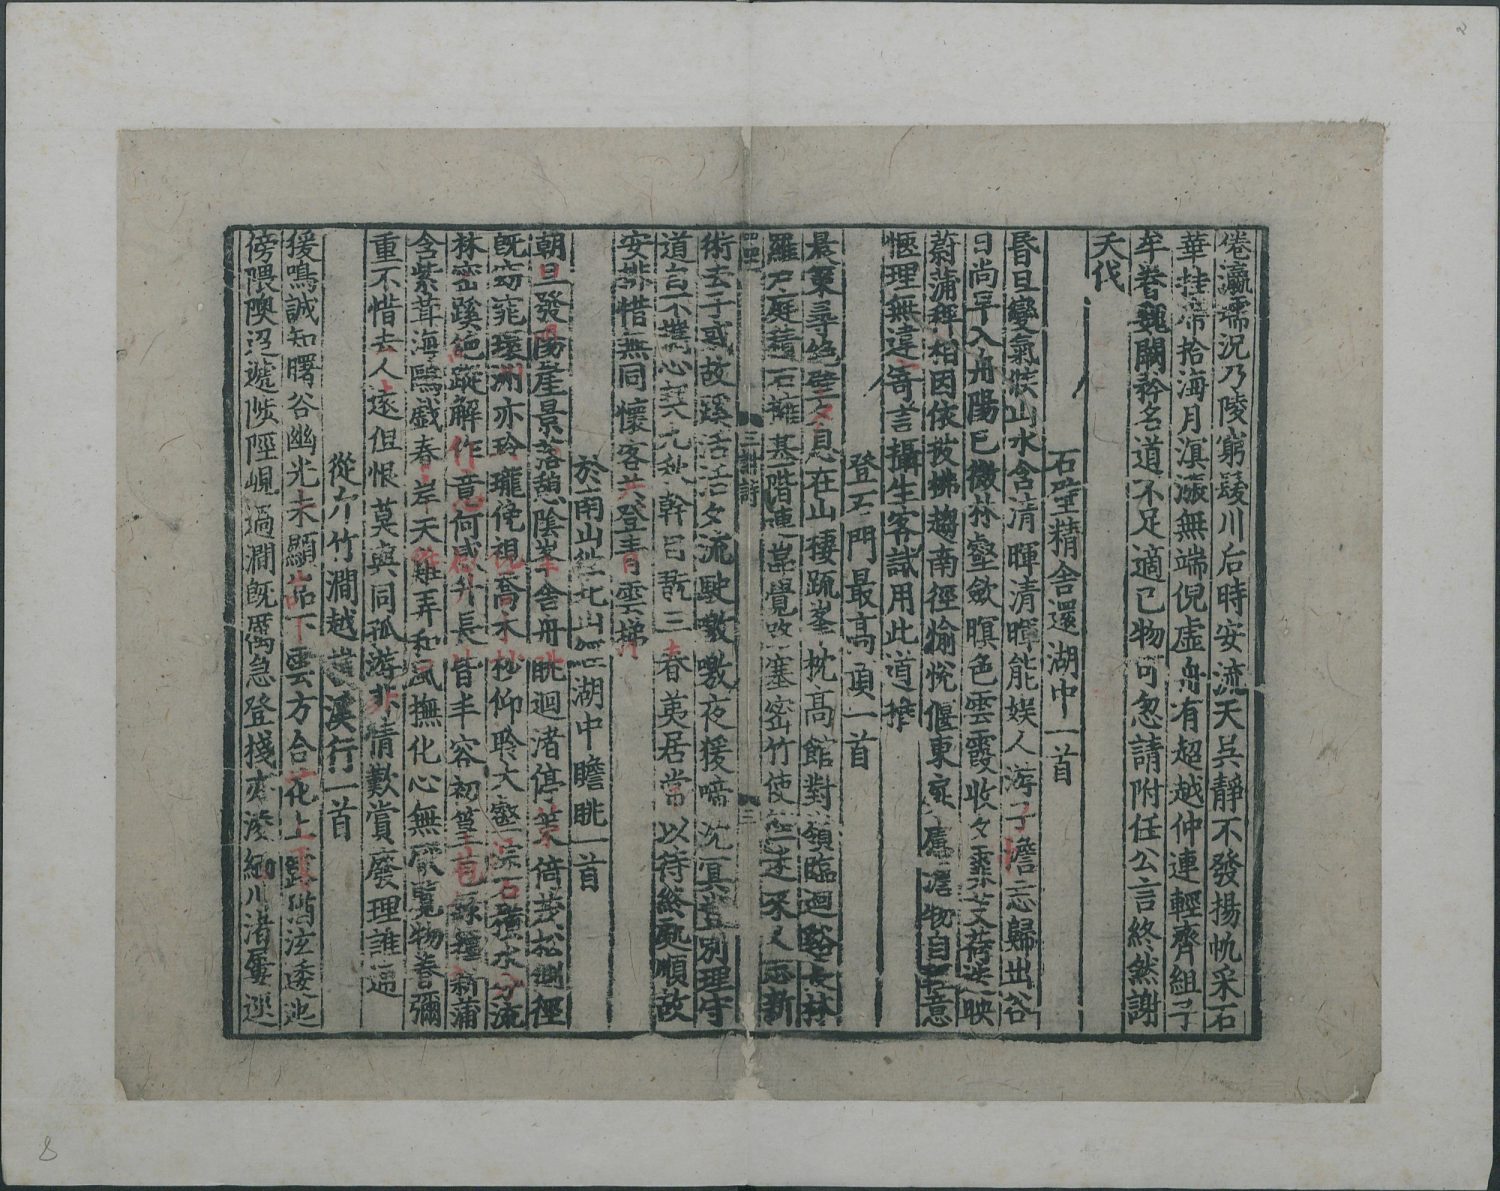 倦瀛壖況乃陵窮髮川后時安流天吳靜不發揚帆采石
華挂席拾海月溟漲無端倪虛舟有超越仲連輕齊組子
牟眷魏闕矜名道不足適己物可忽請附任公言終然謝
夭伐
石壁精舍還湖中一首
昏旦變氣候山水含清暉清暉能娛人游子憺忘歸出谷
日尚早入舟陽已微林壑斂暝色雲霞收夕霏芰荷迭映
蔚蒲稗相因依披拂趨南徑愉悅偃東扉慮澹物自輕意
愜理無違寄言攝生客試用此道推
登石門最高頂一首
晨策尋絕壁夕息在山棲疏峯枕高館對嶺臨迴谿長林
羅戶庭積石擁基階連巖覺路塞密竹使徑迷來人忘新
術去子或故蹊活活夕流駛噭噭夜猨啼沈冥豈別理守
道言不攜心契九秋幹目翫三春荑居常以待終處順故
安排惜無同懷客共登青雲梯
三謝詩
三
於南山往北山經湖中瞻眺一首
朝旦發陽崖景落憩陰峯舍舟眺迴渚停策倚茂松側徑
既窈窕環洲亦玲瓏俛視喬木杪仰聆大壑淙石橫水分流
林密蹊絕蹤解作竟何感升長皆丰容初篁苞綠籜新蒲
含紫茸海鷗戲春岸天雞弄和風撫化心無厭覽物眷彌
重不惜去人遠但恨莫與同孤游非情歎賞廢理誰通
從斤竹澗越嶺溪行一首
猨鳴誠知曙谷幽光未顯巖下雲方合花上露猶泫逶迆
傍隈隩迢遞陟陘峴過澗既厲急登棧亦淩緬川渚屢逕